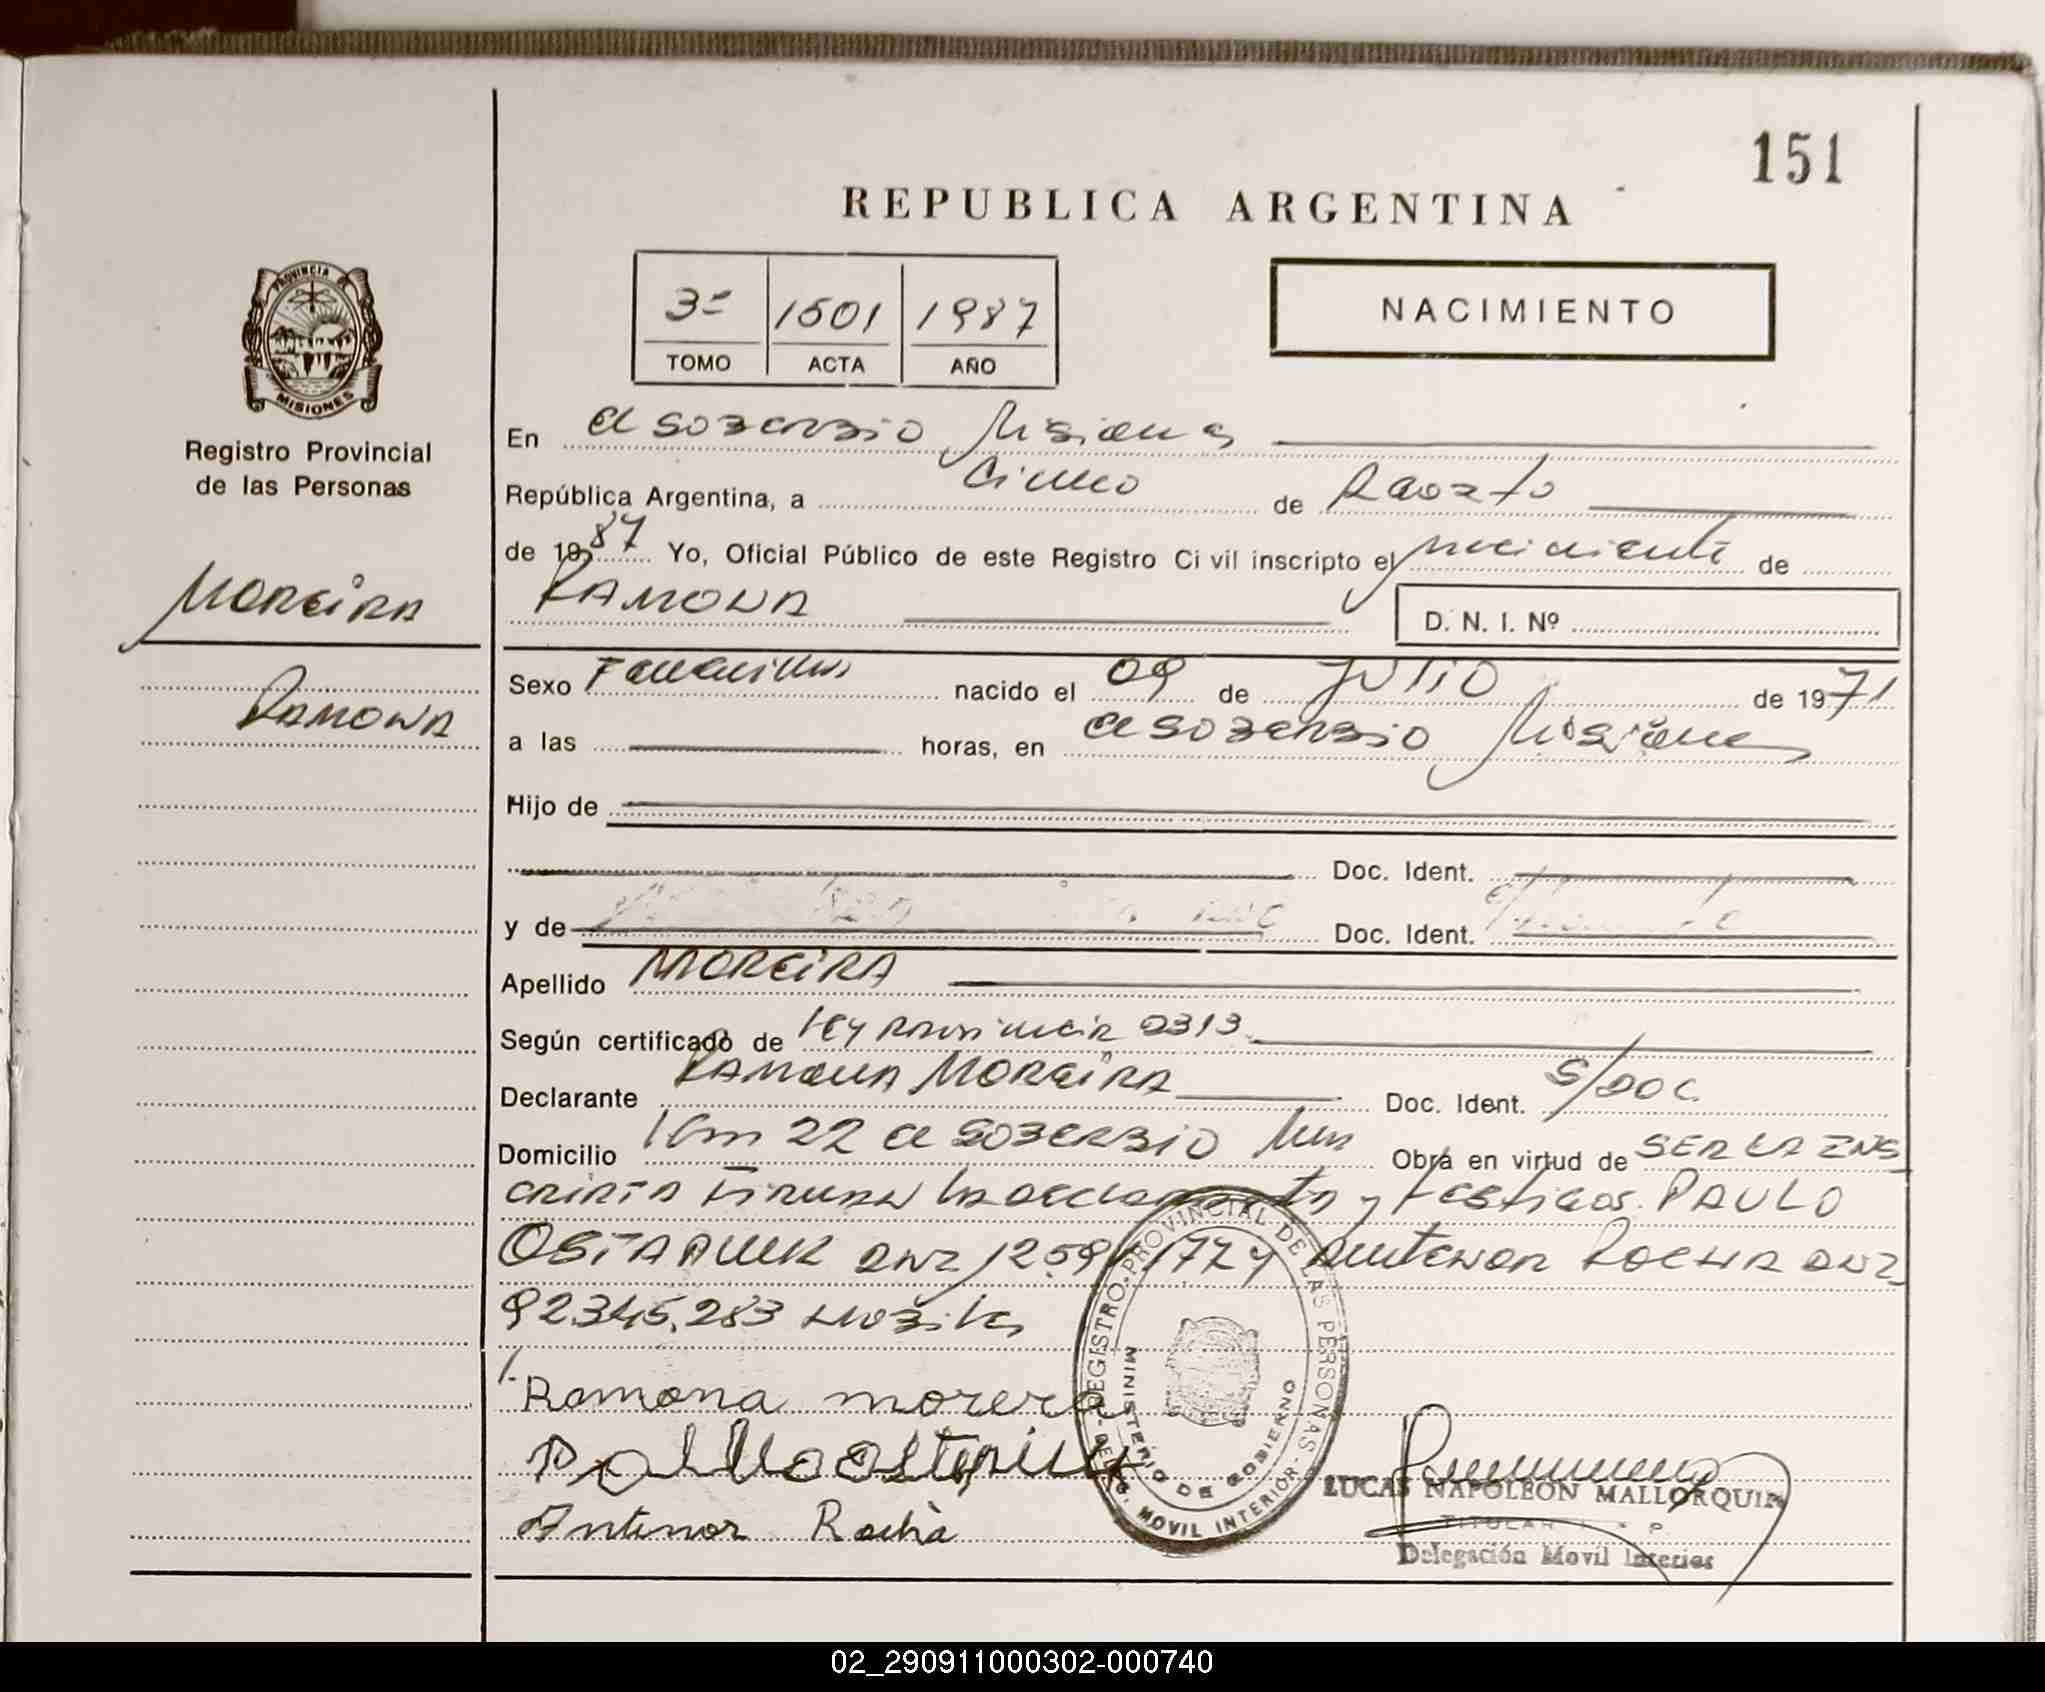 151
REPUBLICA ARGENTINA
3º 1501 1987
TOMO ACTA AÑO
NACIMIENTO
PROVINCIA
MISIONES
Registro Provincial
de las Personas
MOREIRA
RAMONA
En El SOBERBIO, Misiones
República Argentina, a Cinco de Agosto
de 1987 Yo, Oficial Público de este Registro Civil inscripto el nacimiento de
RAMONA
D. N. I. Nº
Sexo Femenino nacido el 09 de JULIO de 1971
a las horas, en El SOBERBIO Misiones
Hijo de
Doc. Ident.
y de Doc. Ident.
Apellido MOREIRA
Según certificado de Ley Provincia 2313
Declarante RAMONA MOREIRA Doc. Ident. S/DOC
Domicilio Km 22 El SOBERBIO Mns Obra en virtud de SER LA INS
CRIPTA FIRMAN la declaranta y testigos. PAULO
OSTAPIUK DNI 12.59 177 y ANTENOR ROCHA DNI
92.345.283
Ramona morera
Antenor Rocha
REGISTRO PROVINCIAL DE LAS PERSONAS
MINISTERIO DE GOBIERNO
MOVIL INTERIOR
LUCAS NAPOLEON MALLORQUIN
TITULAR
Delegación Movil Interior
02_290911000302-000740